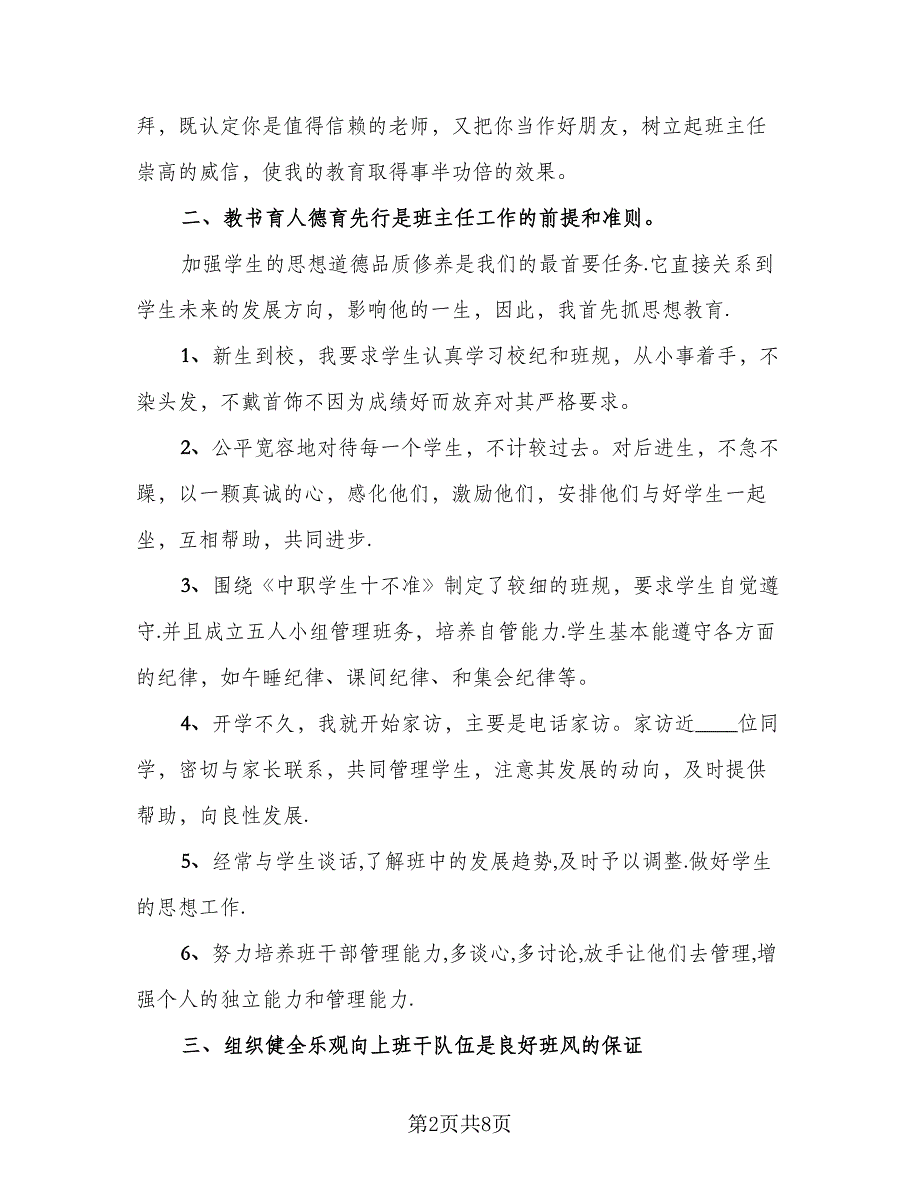 拜，既认定你是值得信赖的老师，又把你当作好朋友，树立起班主任
崇高的威信，使我的教育取得事半功倍的效果。
二、教书育人德育先行是班主任工作的前提和准则。
加强学生的思想道德品质修养是我们的最首要任务.它直接关系到
学生未来的发展方向，影响他的一生，因此，我首先抓思想教育.
1、新生到校，我要求学生认真学习校纪和班规，从小事着手，不
染头发，不戴首饰不因为成绩好而放弃对其严格要求。
2、公平宽容地对待每一个学生，不计较过去。对后进生，不急不
躁，以一颗真诚的心，感化他们，激励他们，安排他们与好学生一起
坐，互相帮助，共同进步.
3、围绕《中职学生十不准》制定了较细的班规，要求学生自觉遵
守.并且成立五人小组管理班务，培养自管能力.学生基本能遵守各方面
的纪律，如午睡纪律、课间纪律、和集会纪律等。
4、开学不久，我就开始家访，主要是电话家访。家访近____位同
学，密切与家长联系，共同管理学生，注意其发展的动向，及时提供
帮助，向良性发展.
5、经常与学生谈话,了解班中的发展趋势,及时予以调整.做好学生
的思想工作.
6、努力培养班干部管理能力,多谈心,多讨论,放手让他们去管理,增
强个人的独立能力和管理能力.
三、组织健全乐观向上班干队伍是良好班风的保证
第2页共8页